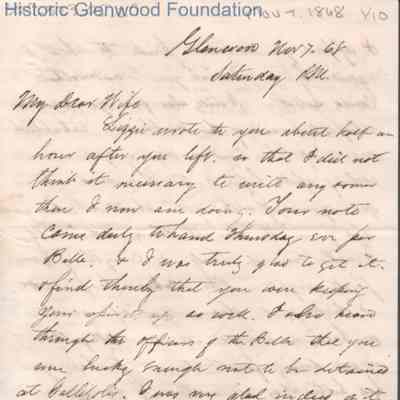 Historic Glenwood Foundation
Nov 7. 1868 Y10
Glenwood Nov 7. 68
Saturday P.M.
My Dear Wife
Lizzie wrote to you about half an
hour after you left. so that I did not
think it necessary to write any sooner
than I now am doing. Your note
came duly to hand Thursday eve per
Belle. & I was truly glad to get it.
I find thereby that you were keeping
your spirits up so well. I also heard
through the officers of the Belle that you
were lucky enough not to be detained
at Gallipolis. I was very glad indeed